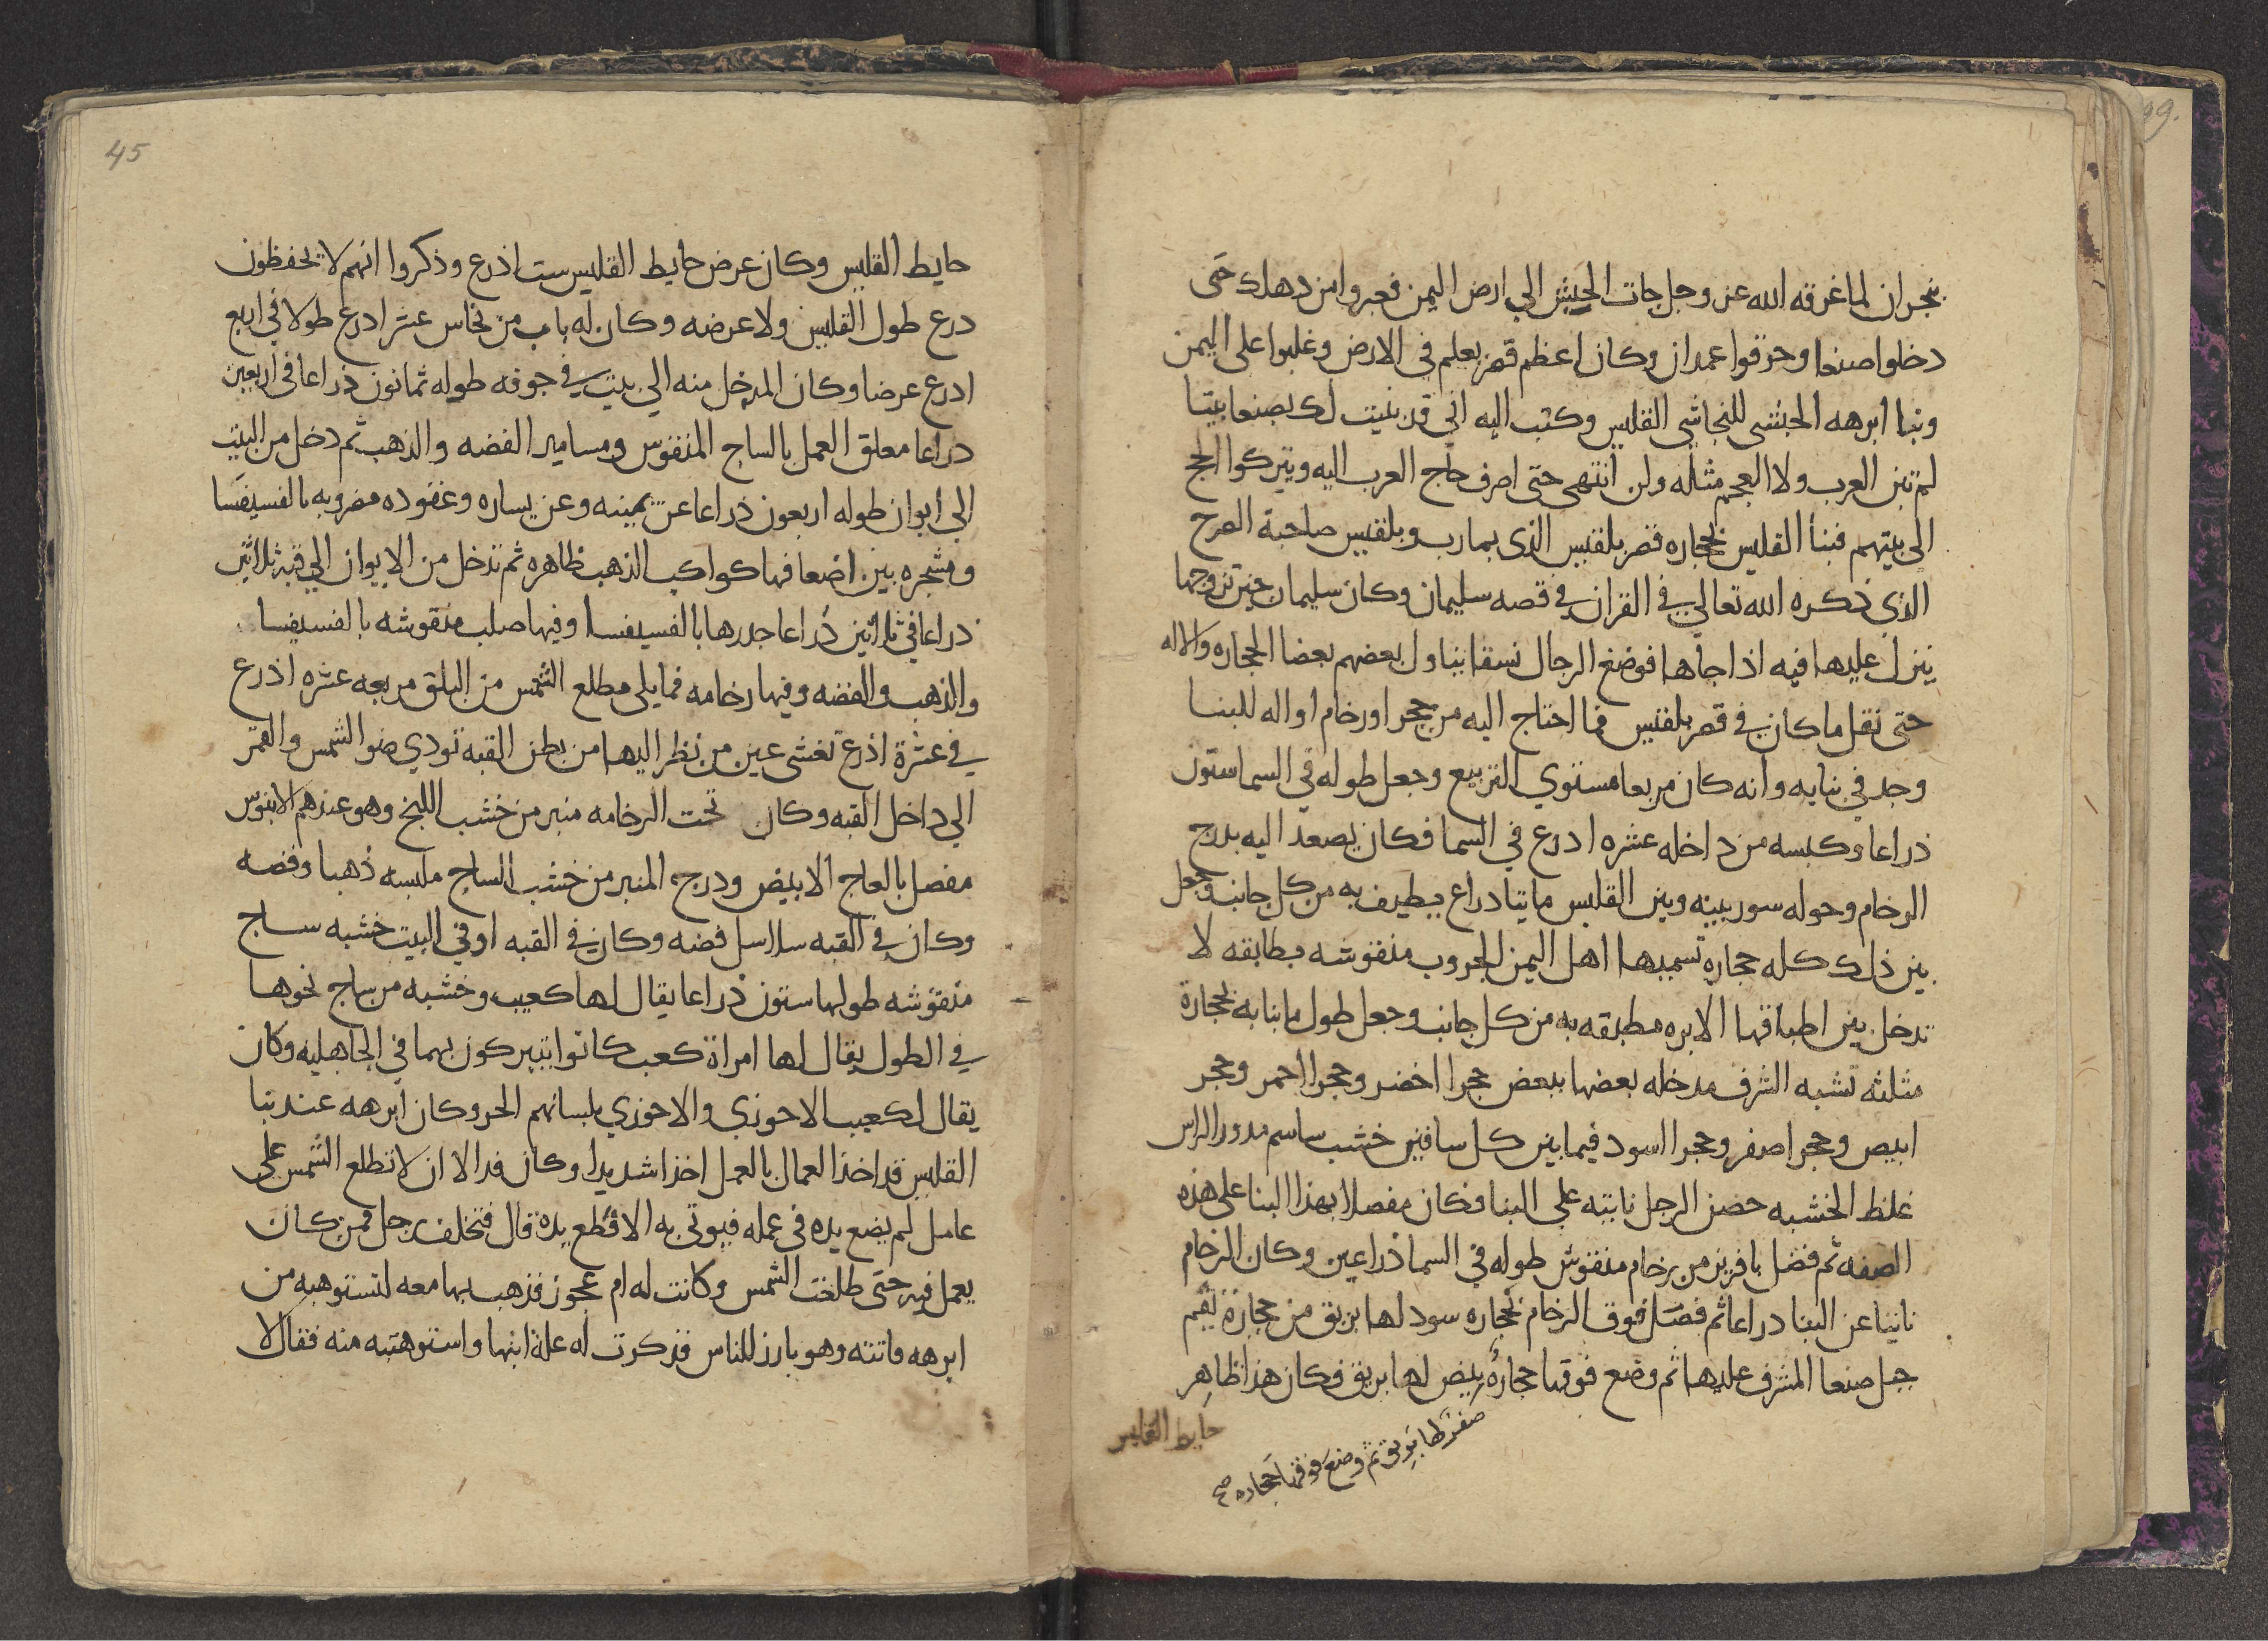 بنجران لما غرقه الله عز وجل جات الحبش الي ارض اليمن فعبروا من دهلك حتى
دخلوا صنعا وحرقوا عمدان وكان اعظم قصر يعلم في الارض وغلبوا على اليمن
وبنا ابرهه الحبشي للنجاشي القليس وكتب اليه اني قد بنيت لك بصنعا بيتا
لم تبن العرب ولا العجم مثله ولن انتهى حتى اصرف حاج العرب اليه ويتركوا الحج
الى بيتهم فبنا القليس بحجاره قصر بلقيس الذي بمارب وبلقيس صاحبة الصرح
الذي ذكره الله تعالي في القران في قصه سليمان وكان سليمان حين تزوجها
ينزل عليها فيه اذا جاها فوضع الرجال نسقا يناول بعضهم بعضا الحجاره والاله
حتى نقل ما كان في قصر بلقيس مما احتاج اليه من حجر او رخام او اله للبنا
وجد في بنايه وانه كان مربعا مستوي التربيع وجعل طوله في السما ستون
ذراعا وكبسه من داخله عشره ادرع في السما فكان يصعد اليه بدرج
الرخام وحوله سور بينه وبين القليس مايتا دراع يطيف به من كل جانب وجعل
بين ذلك كله حجاره تسميها اهل اليمن الجروب منقوشه مطابقه لا
تدخل بين اطباقها الابره مطبقه به من كل جانب وجعل طول ما بنا به بحجارة
مثلثه تشبه الشرف مدخله بعضها ببعض حجرا اخضر وحجرا احمر وحجر
ابيص وحجر اصفر وحجرا اسود فيما بين كل سافين خشب ساسم مدور الراس
غلظ الخشبه حصن الرجل ناتيه علي البنا فكان مفصلا بهذا البنا على هذه
الصفه ثم فصل بافريز من رخام منقوش طوله في السما ذراعين وكان الرخام
ناتيا عن البنا دراعا ثم فصل فوق الرخام بحجاره سود لها بريق من حجارة نقم
جبل صنعا المشرف عليها ثم وضع فوقها حجارة بيض لها بريق فكان هذا ظاهر
صفر لها بريق ثم وضع فوقها حجاره صح
حايط القليس
45
حايط القليس وكان عرض حايط القليس ست اذرع وذكروا انهم لا يحفظون
درع طول القليس ولا عرضه وكان له باب من نحاس عشر ادرع طولا في اربع
ادرع عرضا وكان المدخل منه الي بيت في جوفه طوله ثمانون ذراعا في اربعين
دراعا معلق العمل بالساج المنقوس ومسامير الفضه والذهب ثم دخل من البيت
الي ايوان طوله اربعون ذراعا عن يمينه وعن يساره وعقوده مضروبه بالفسيفسا
ومشجره بين اضعافها كواكب الذهب ظاهره ثم تدخل من الايوان الي قبة ثلاثين
دراعا في ثلاثين ذراعا جدرها بالفسيفسا وفيها صلب منقوشه بالفسيفسا
والذهب والفضه وفيها رخامه مما يلي مطلع الشمس من البلق مربعه عشره اذرع
في عشرة اذرع تغشى عين من نظر اليها من بطن القبه تودي ضو الشمس والقمر
الي داخل القبه وكان تحت الرخامه منبر من خشب اللبخ وهو عندهم الابنوس
مفصل بالعاج الابيض ودرج المنبر من خشب الساج ملبسه ذهبا وفضه
وكان في القبه سلاسل فضه وكان في القبه او في البيت خشبه ساج
منقوشه طولها ستون ذراعا يقال لها كعيب وخشبه من ساج نحوها
في الطول يقال لها امراة كعب كانوا يتبركون بهما في الجاهليه وكان
يقال لكعيب الاحوزي والاحوزي بلسانهم الحر وكان ابرهه عند بنا
القليس قد اخذ العمال بالعمل اخذا شديدا وكان قد الا ان لا تطلع الشمس علي
عامل لم يضع يده في عمله فيوتي به الا قطع يده قال فتخلف رجل ممن كان
يعمل فيه حتى طلعت الشمس وكانت له ام عجوز فذهب بها معه لتستوهبه من
ابرهه فاتته وهو بارز للناس فذكرت له علة ابنها واستوهبته منه فقال لا